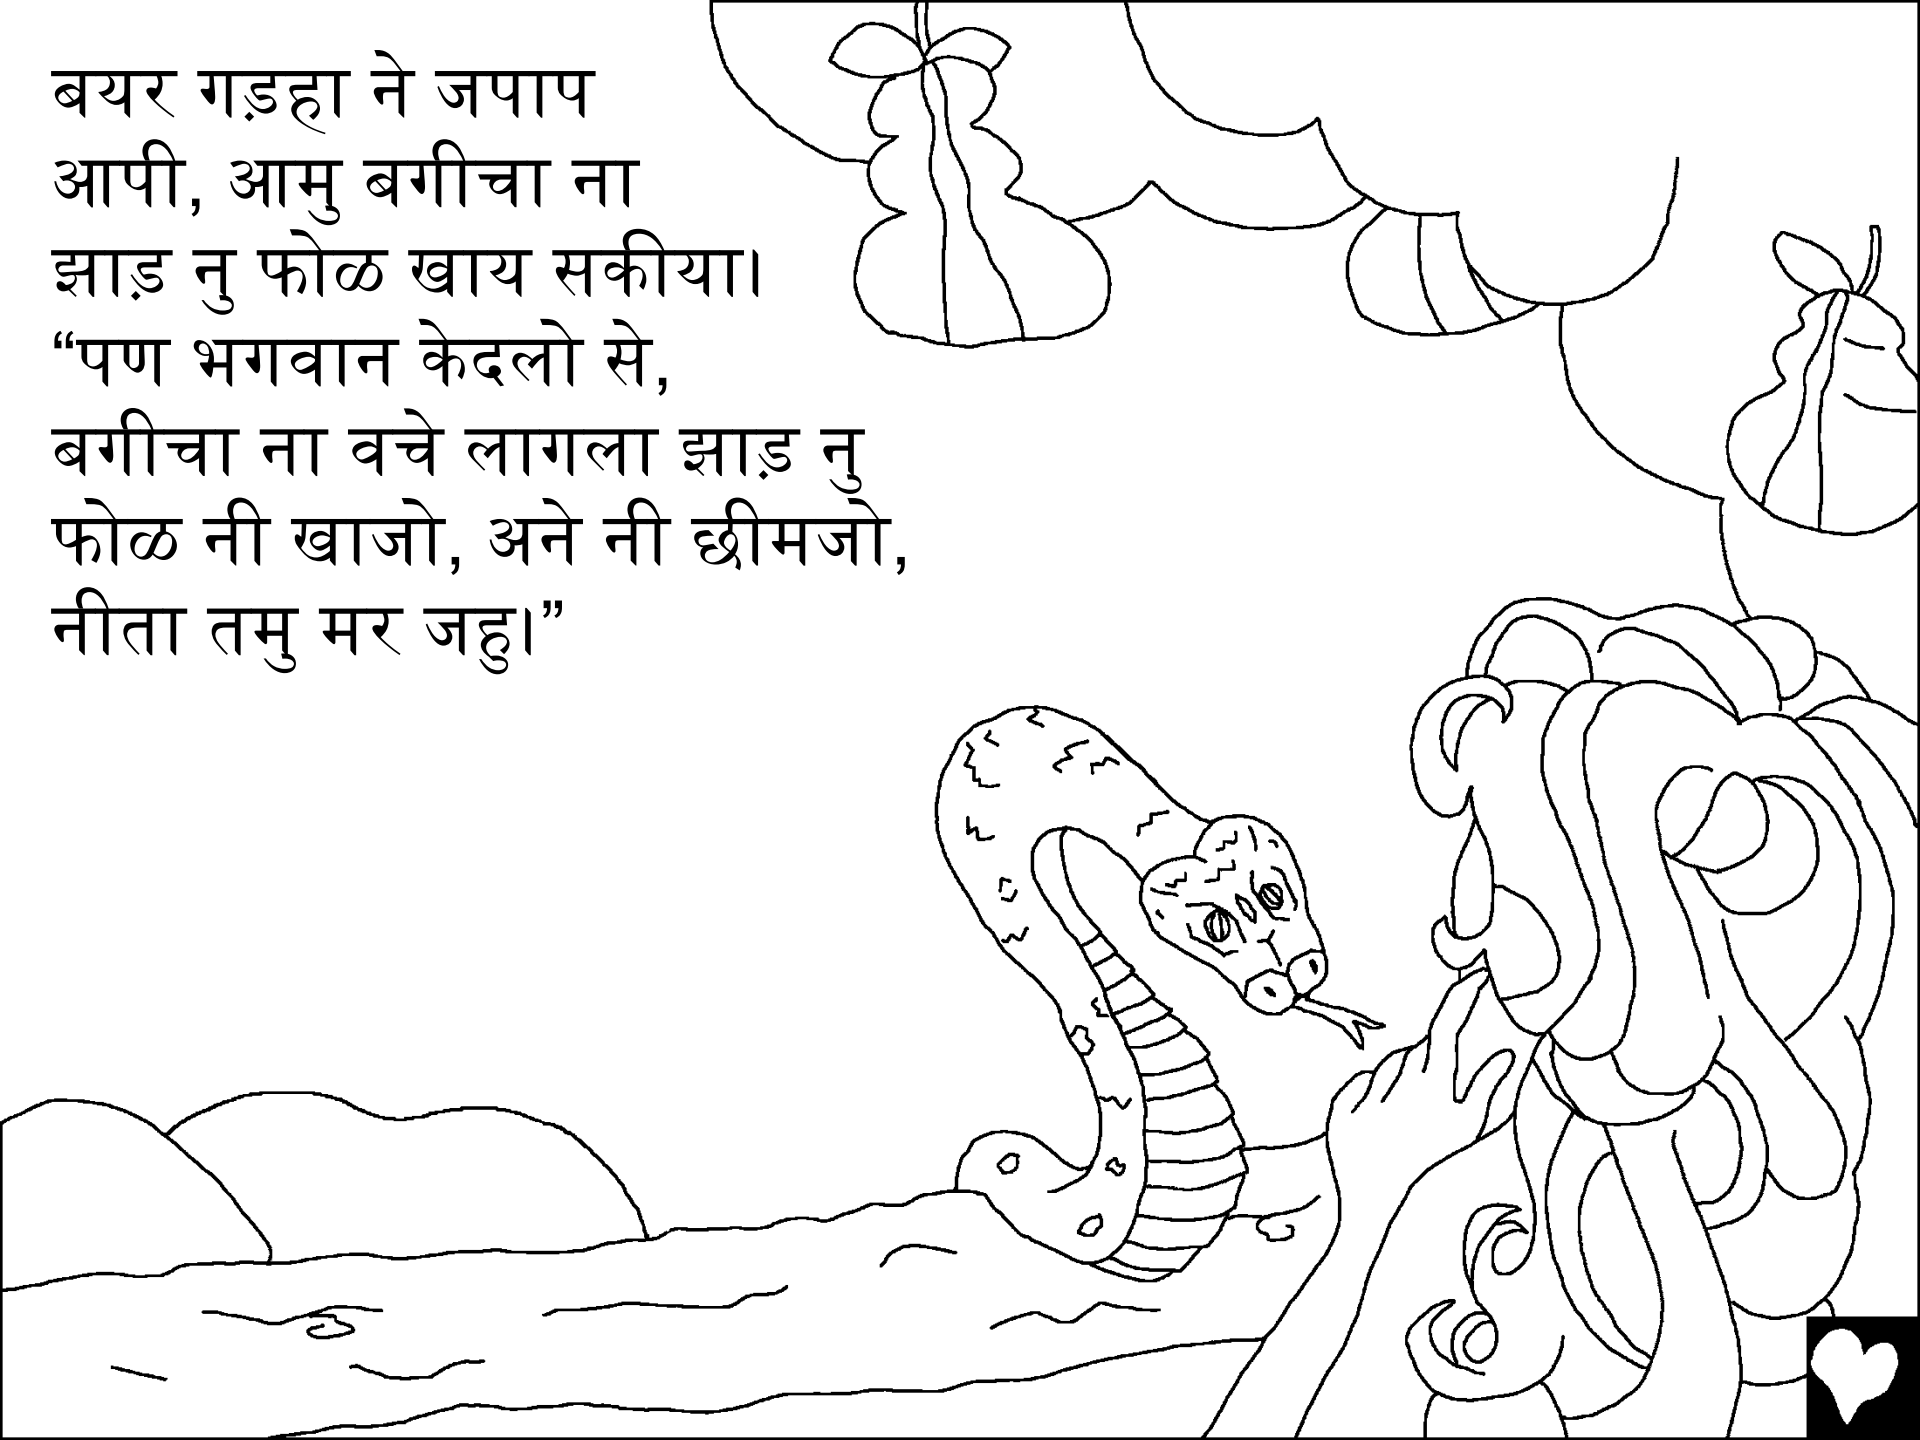 बयर गड़हा ने जपाप
आपी, आमु बगीचा ना
झाड़ नु फोळ खाय सकीया।
“पण भगवान केदलो से,
बगीचा ना वचे लागला झाड़ नु
फोळ नी खाजो, अने नी छीमजो,
नीता तमु मर जहु।”